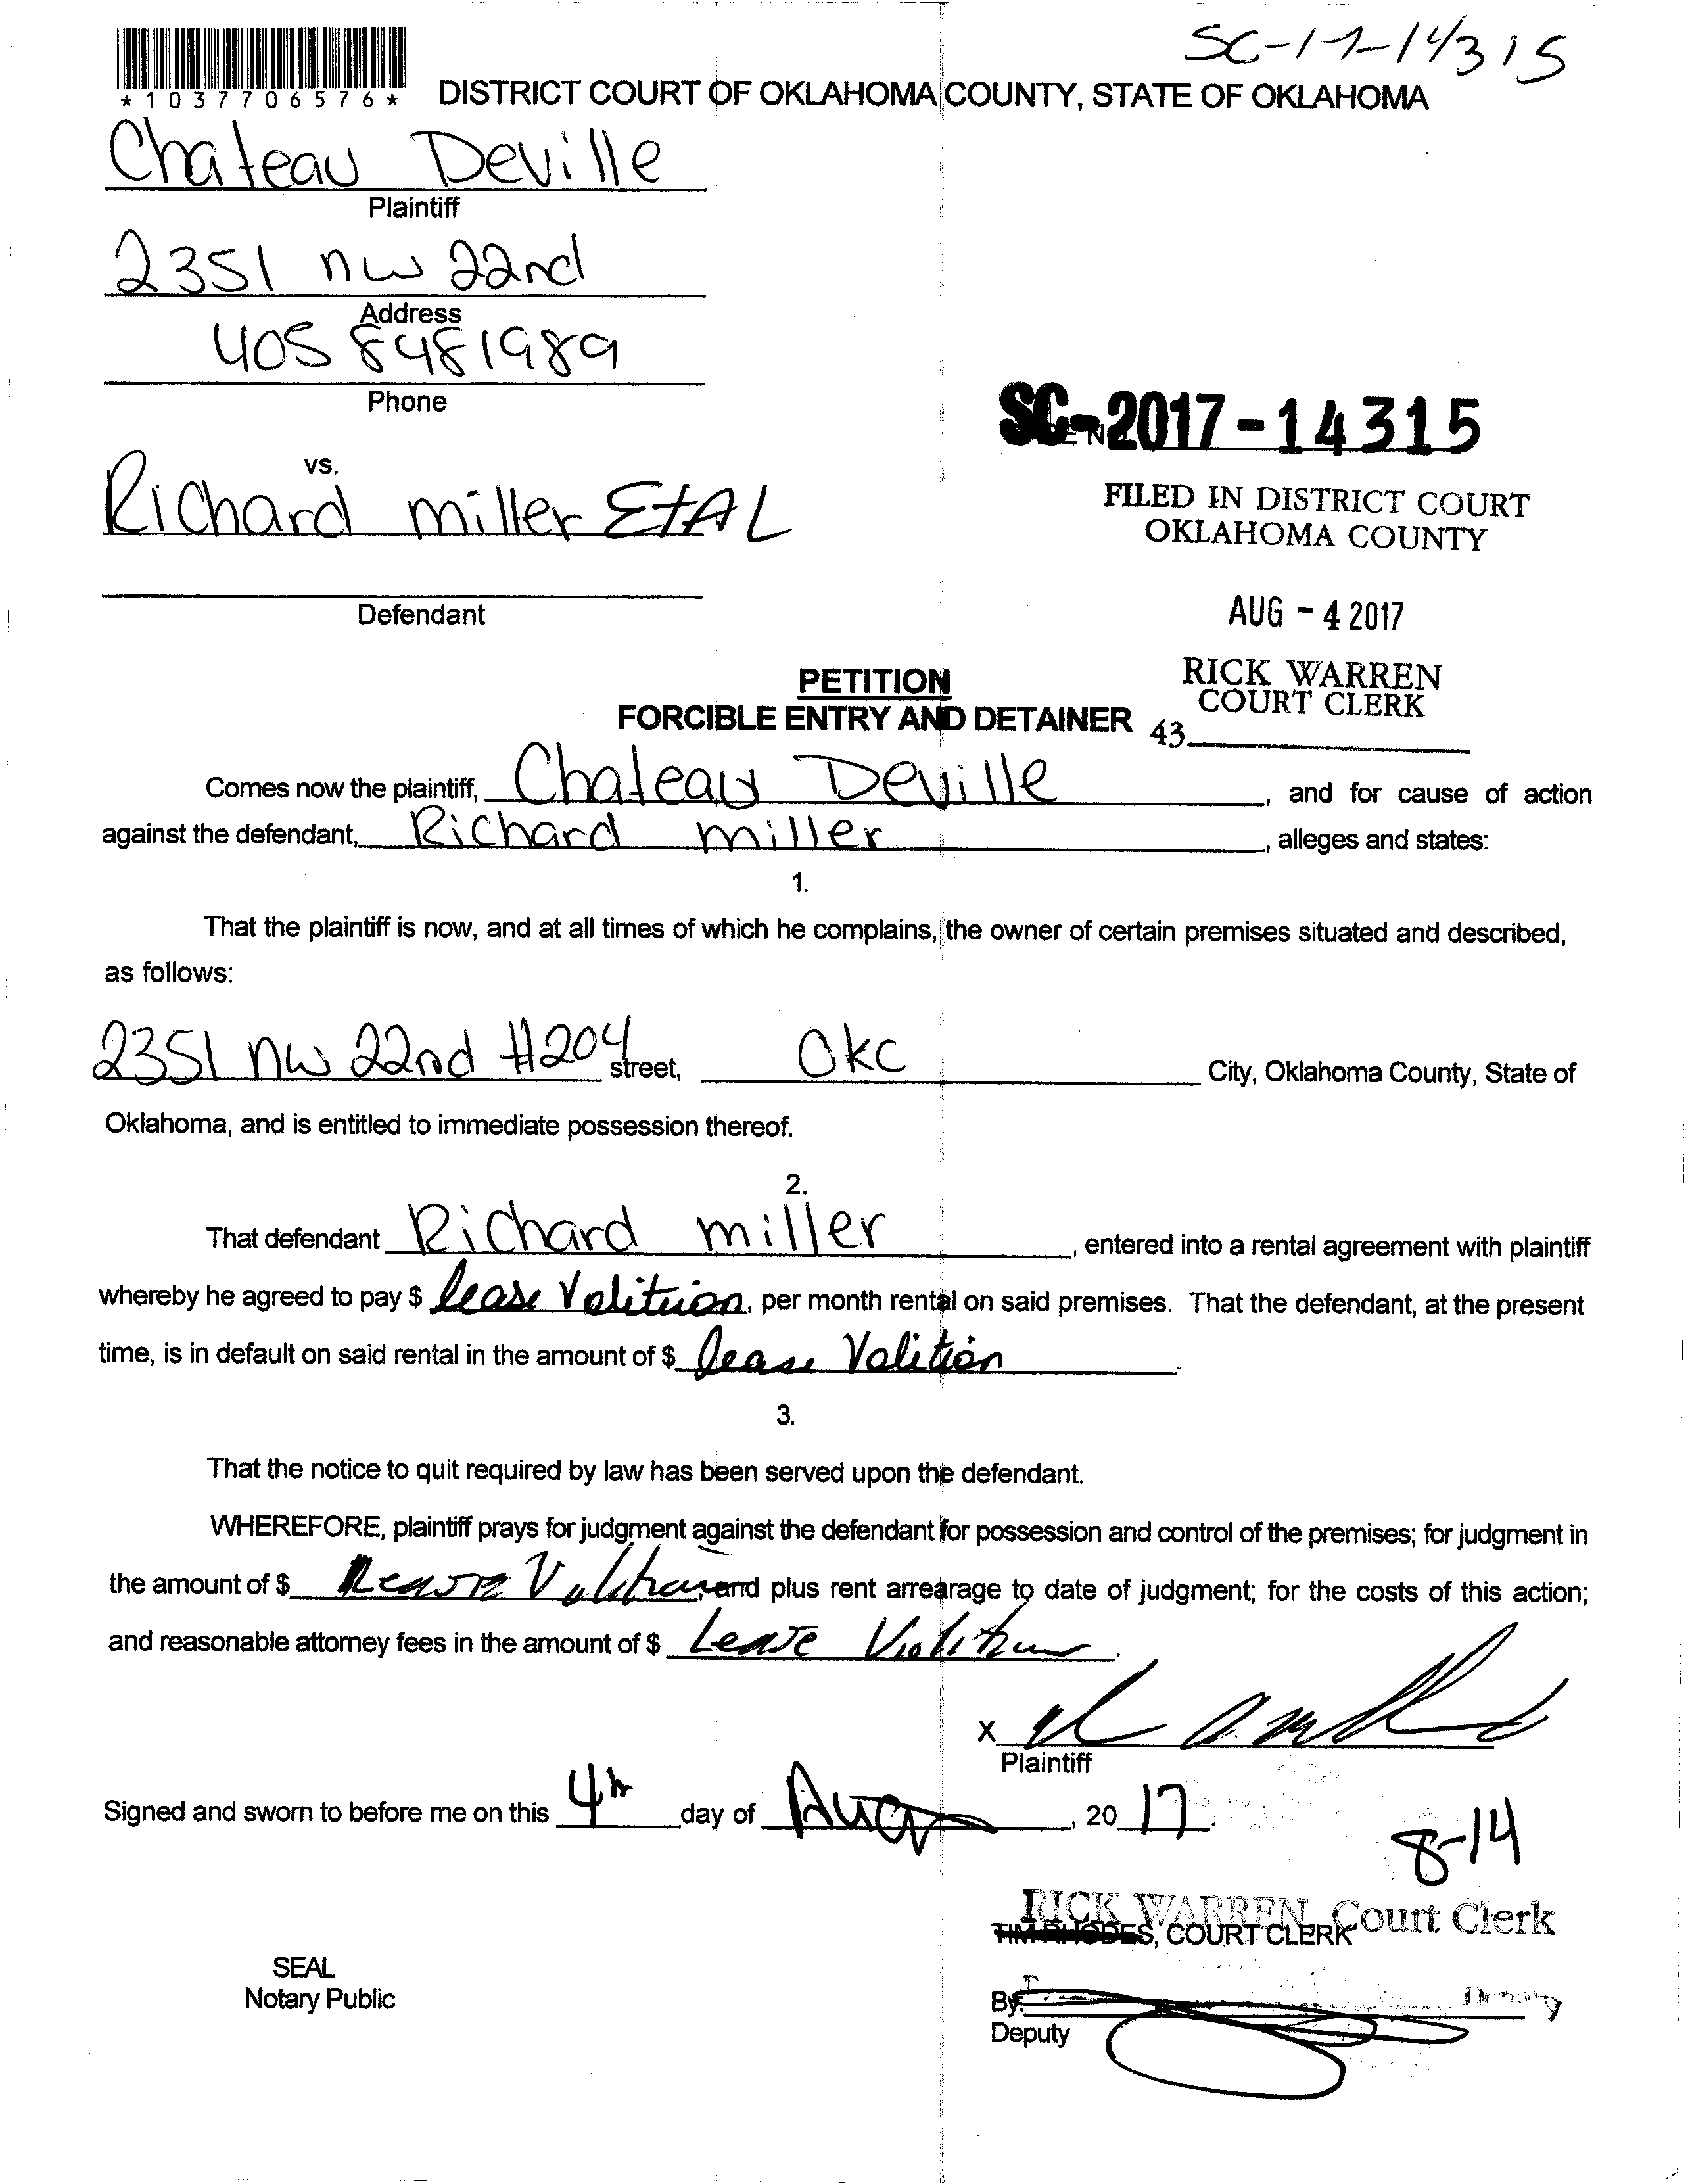 SC-17-14315
*1037706576*
DISTRICT COURT OF OKLAHOMA COUNTY, STATE OF OKLAHOMA
Chateau Deville
Plaintiff
2351 nw 22nd
Address
405 8481989
Phone
SC-2017-14315
vs.
Richard miller EtAL
FILED IN DISTRICT COURT
OKLAHOMA COUNTY
Defendant
AUG - 4 2017
PETITION
RICK WARREN
COURT CLERK
FORCIBLE ENTRY AND DETAINER
43
Comes now the plaintiff, Chateau Deville, and for cause of action
against the defendant, Richard miller, alleges and states:
1.
That the plaintiff is now, and at all times of which he complains, the owner of certain premises situated and described,
as follows:
2351 nw 22nd #204 street, Okc City, Oklahoma County, State of
Oklahoma, and is entitled to immediate possession thereof.
2.
That defendant Richard miller, entered into a rental agreement with plaintiff
whereby he agreed to pay $ lease, per month rental on said premises. That the defendant, at the present
time, is in default on said rental in the amount of $ lease Valition.
3.
That the notice to quit required by law has been served upon the defendant.
WHEREFORE, plaintiff prays for judgment against the defendant for possession and control of the premises; for judgment in
the amount of $ and plus rent arrearage to date of judgment; for the costs of this action;
and reasonable attorney fees in the amount of $ Lease.
X
Plaintiff
Signed and sworn to before me on this 4th day of Aug, 20 17.
8-14
RICK WARREN, Court Clerk
TIM RHODES, COURT CLERK
SEAL
Notary Public
By: Deputy
Deputy